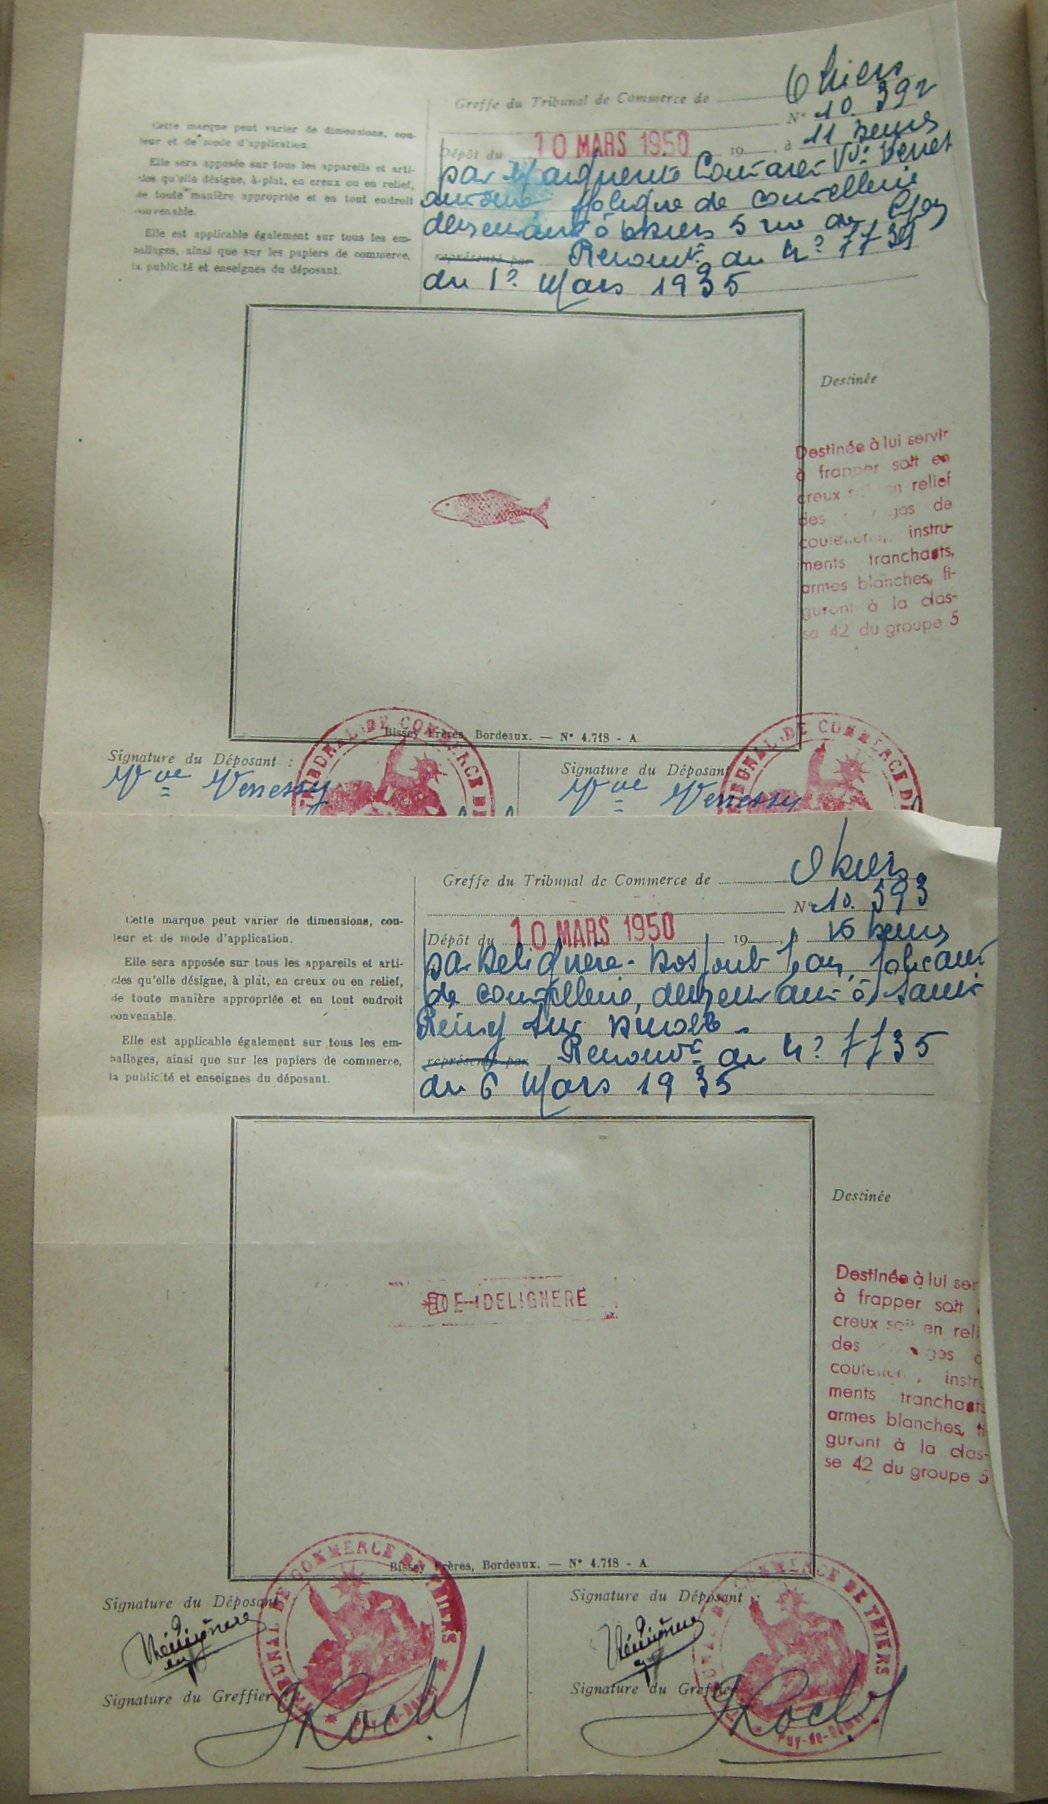 Greffe du Tribunal de Commerce de Thiers
N° 10.392
Dépôt du 10 MARS 1950 19 à 11 heures
par Marguerite Vve
de coutellerie
demeurant à Thiers 5 rue de
représenté par Renouvt du n° 7739
du 1° Mars 1935
Cette marque peut varier de dimensions, cou-
leur et de mode d'application.
Elle sera apposée sur tous les appareils et arti-
cles qu'elle désigne, à plat, en creux ou en relief,
de toute manière appropriée et en tout endroit
convenable.
Elle est applicable également sur tous les em-
ballages, ainsi que sur les papiers de commerce,
la publicité et enseignes du déposant.
Destinée
Destinée à lui servir
à frapper soit en
creux soit en relief
des de
instru-
ments tranchants,
armes blanches, fi-
gurant à la clas-
se 42 du groupe 5
Bissey Frères, Bordeaux. — N° 4.718 - A
TRIBUNAL DE COMMERCE DE
TRIBUNAL DE COMMERCE D
Signature du Déposant :
Signature du Déposant
Vve
Vve
Greffe du Tribunal de Commerce de Thiers
N° 10.393
Dépôt du 10 MARS 1950 19 à 16 heures
par Delignère- fabricant
de coutellerie, demeurant à Saint
Rémy sur Durolle
représenté par Renouvt du n° 7735
du 6 Mars 1935
Cette marque peut varier de dimensions, cou-
leur et de mode d'application.
Elle sera apposée sur tous les appareils et arti-
cles qu'elle désigne, à plat, en creux ou en relief,
de toute manière appropriée et en tout endroit
convenable.
Elle est applicable également sur tous les em-
ballages, ainsi que sur les papiers de commerce,
la publicité et enseignes du déposant.
Destinée
Destinée à lui ser
à frapper soit
creux soit en reli
des
instru
ments tranchants
armes blanches, fi
gurant à la clas-
se 42 du groupe 5
DELIGNERE
Bissey Frères, Bordeaux. — N° 4.718 - A
TRIBUNAL DE COMMERCE DE THIERS
Puy-de-Dôme
TRIBUNAL DE COMMERCE DE THIERS
Puy-de-Dôme
Signature du Déposant
Signature du Déposant :
Signature du Greffier
Signature du Greffier